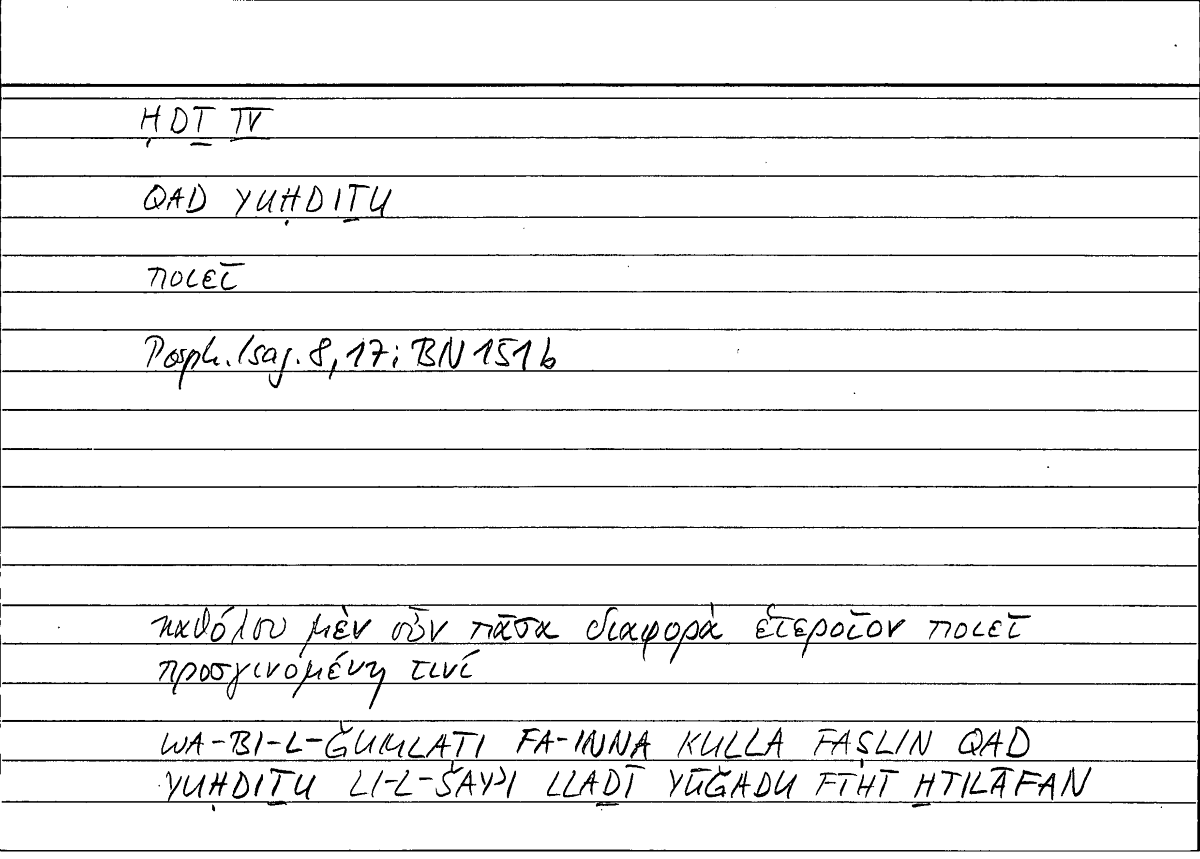 ḤDṮ IV
QAD YUḤDIṮU
ποιεῖ
Porph. Isag. 8, 17; BN 151b
καθόλου μὲν οὖν πᾶσα διαφορὰ ἑτεροῖον ποιεῖ
προσγινομένη τινί
WA-BI-L-ǦUMLATI FA-INNA KULLA FAṢLIN QAD
YUḤDIṮU LI-L-ŠAYʾI LLAḎĪ YŪǦADU FĪHI ḪTILĀFAN